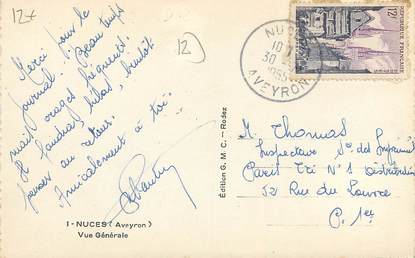 12x
12
Merci pour le
journal. Beau temps
mais orages fréquents.
Il faudra, hélas, bientôt
penser au retour.
Amicalement à toi.
1 - NUCES (Aveyron)
Vue Générale
Édition G. M. C. - Rodez
NUCES
10
30
1955
AVEYRON
12F
REPUBLIQUE FRANÇAISE
M. Thomas
Inspecteur
Paris Tri N°1 Distribution
52 Rue du Louvre
P. 1er